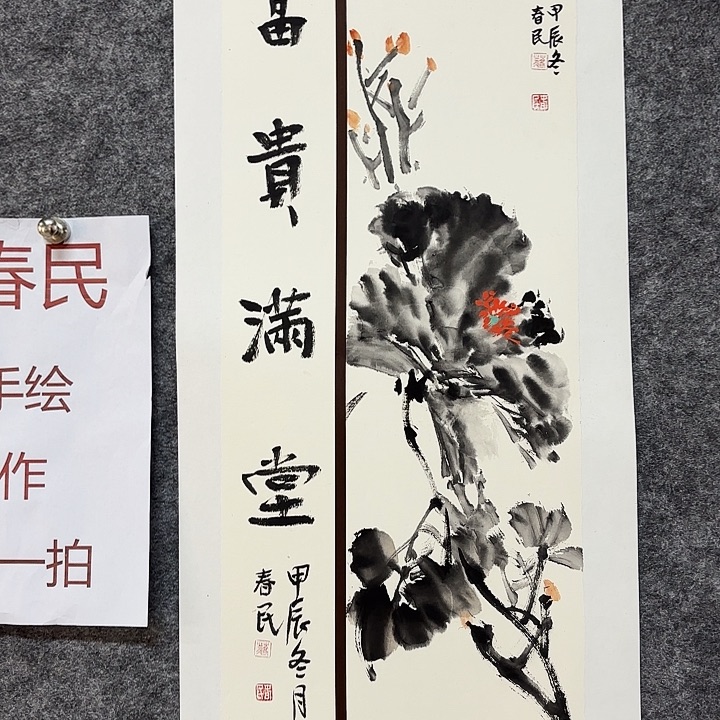 富貴滿堂
甲辰冬月
春民
甲辰冬
春民
春民
手绘
作
一拍